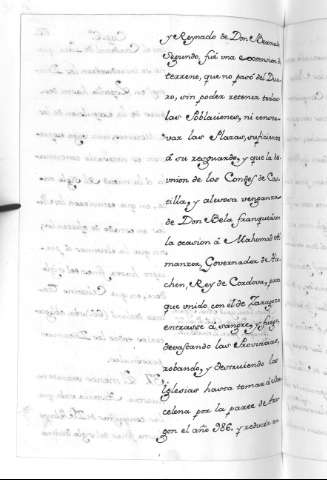 y Reynado de Don Bermudo
Segundo, fué una extension de
terreno, que no pasó del Due-
ro, sin poder retener todas
las Poblaciones, ni conser-
var las Plazas, suficientes
á su resguardo, y que la
union de los Condes de Cas-
tilla, y alevosa venganza
de Don Bela franquearon
la ocasion á Mahomad Al-
manzor, Governador de
Rey de Cordova, para
que unido con él de Zaragoza
entrasse á sangre, y fuego,
devastando las Provincias,
robando, y destruiendo las
Iglesias hasta tomar á Bar-
celona por la parte de Ara-
gon el año 986. y reducir